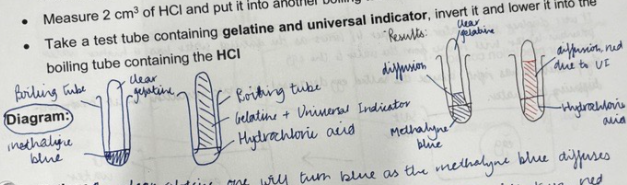 • Measure 2 cm³ of HCl and put it into another
• Take a test tube containing gelatine and universal indicator, invert it and lower it into the
boiling tube containing the HCl
Results:
clear
gelatine
diffusion
diffusion, red
due to UI
Boiling tube
clear
gelatine
Boiling tube
Diagram:
Gelatine + Universal Indicator
Hydrochloric acid
methalyne
blue
Methalyne
blue
Hydrochloric
acid
one will turn blue as the methalyne blue diffuses
red